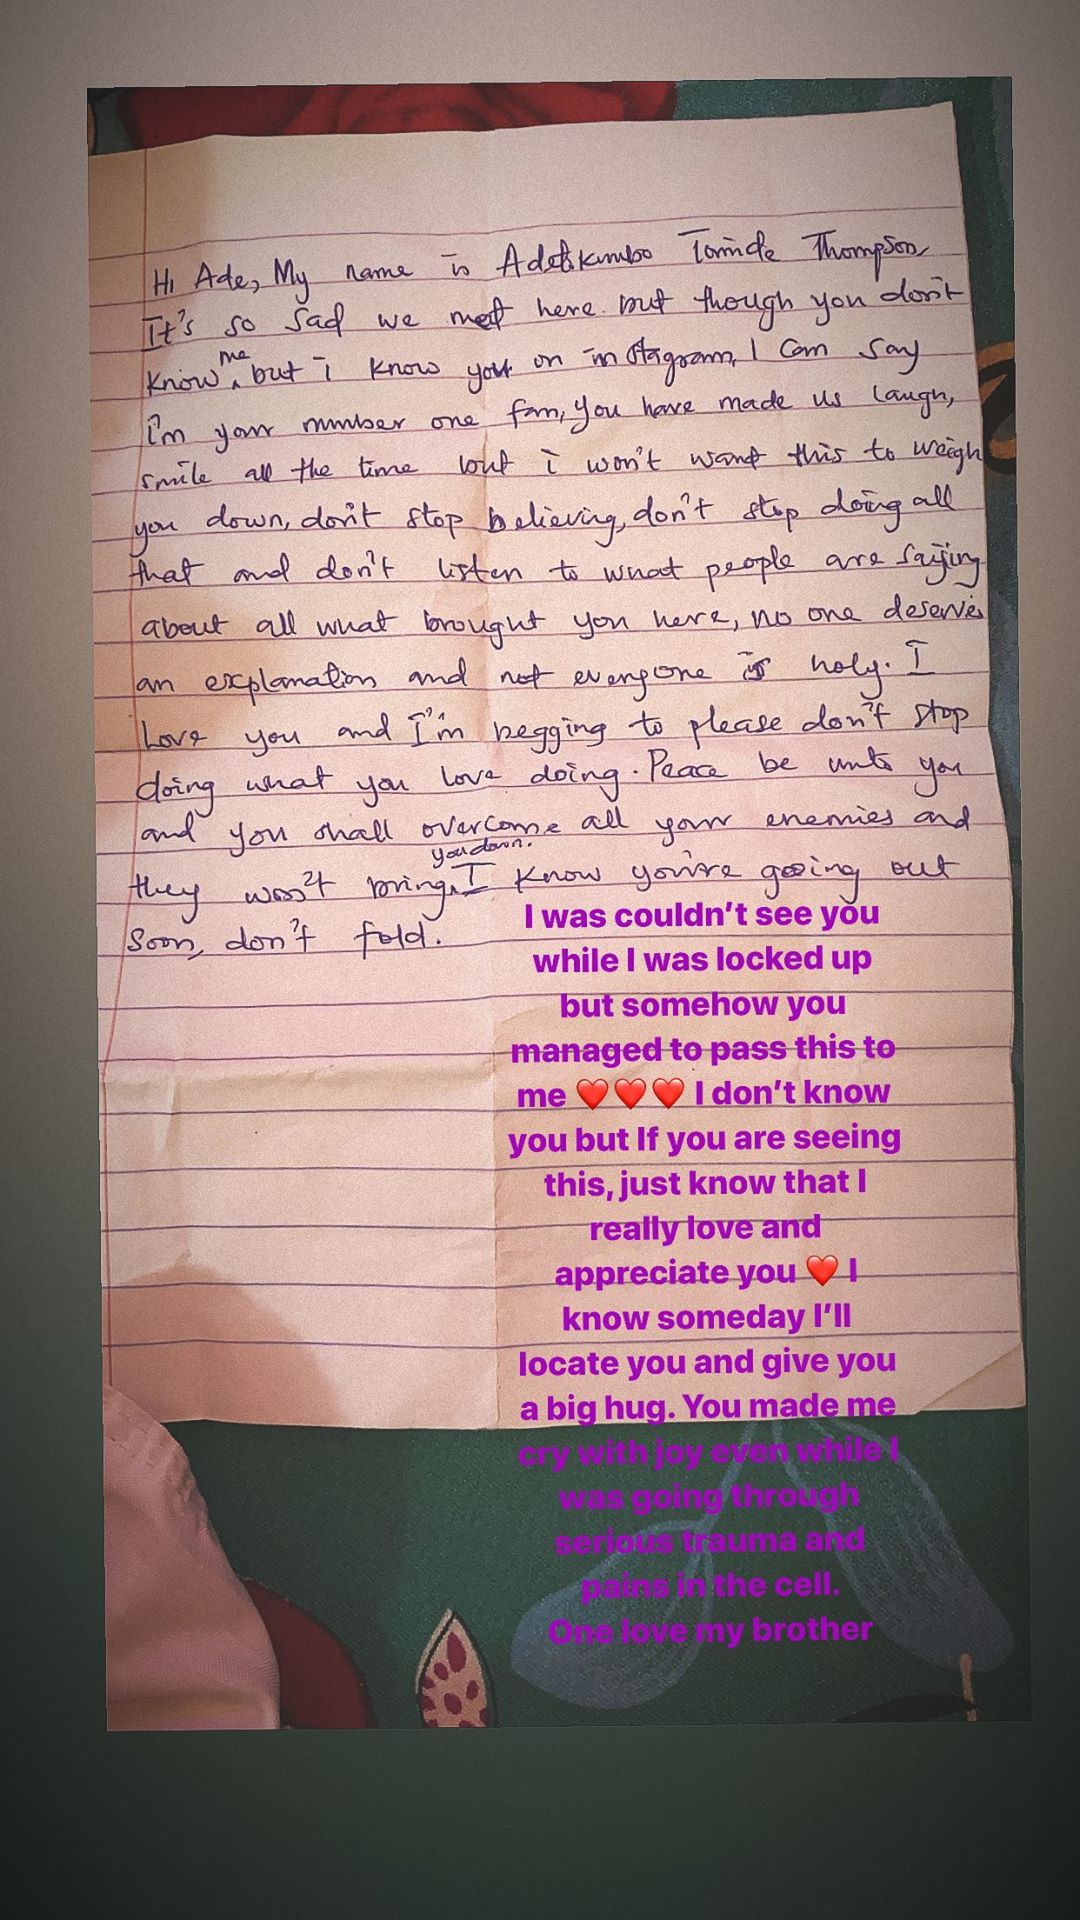 Hi Ade, My name is Adetokunbo Tomide Thompson,
It's so sad we met here. but though you don't
know me, but i know you on instagram, I can say
i'm your number one fan, you have made us laugh,
smile all the time but i won't want this to weigh
you down, don't stop believing, don't stop doing all
that and don't listen to what people are saying
about all what brought you here, no one deserves
an explanation and not everyone is holy. I
Love you and I'm begging to please don't stop
doing what you love doing. Peace be unto you
and you shall overcome all your enemies and
they won't bring you down. I know you're going out
soon, don't fold.
I was couldn’t see you
while I was locked up
but somehow you
managed to pass this to
me ❤️❤️❤️ I don’t know
you but If you are seeing
this, just know that I
really love and
appreciate you ❤️ I
know someday I’ll
locate you and give you
a big hug. You made me
cry with joy even while I
was going through
serious trauma and
pains in the cell.
One love my brother